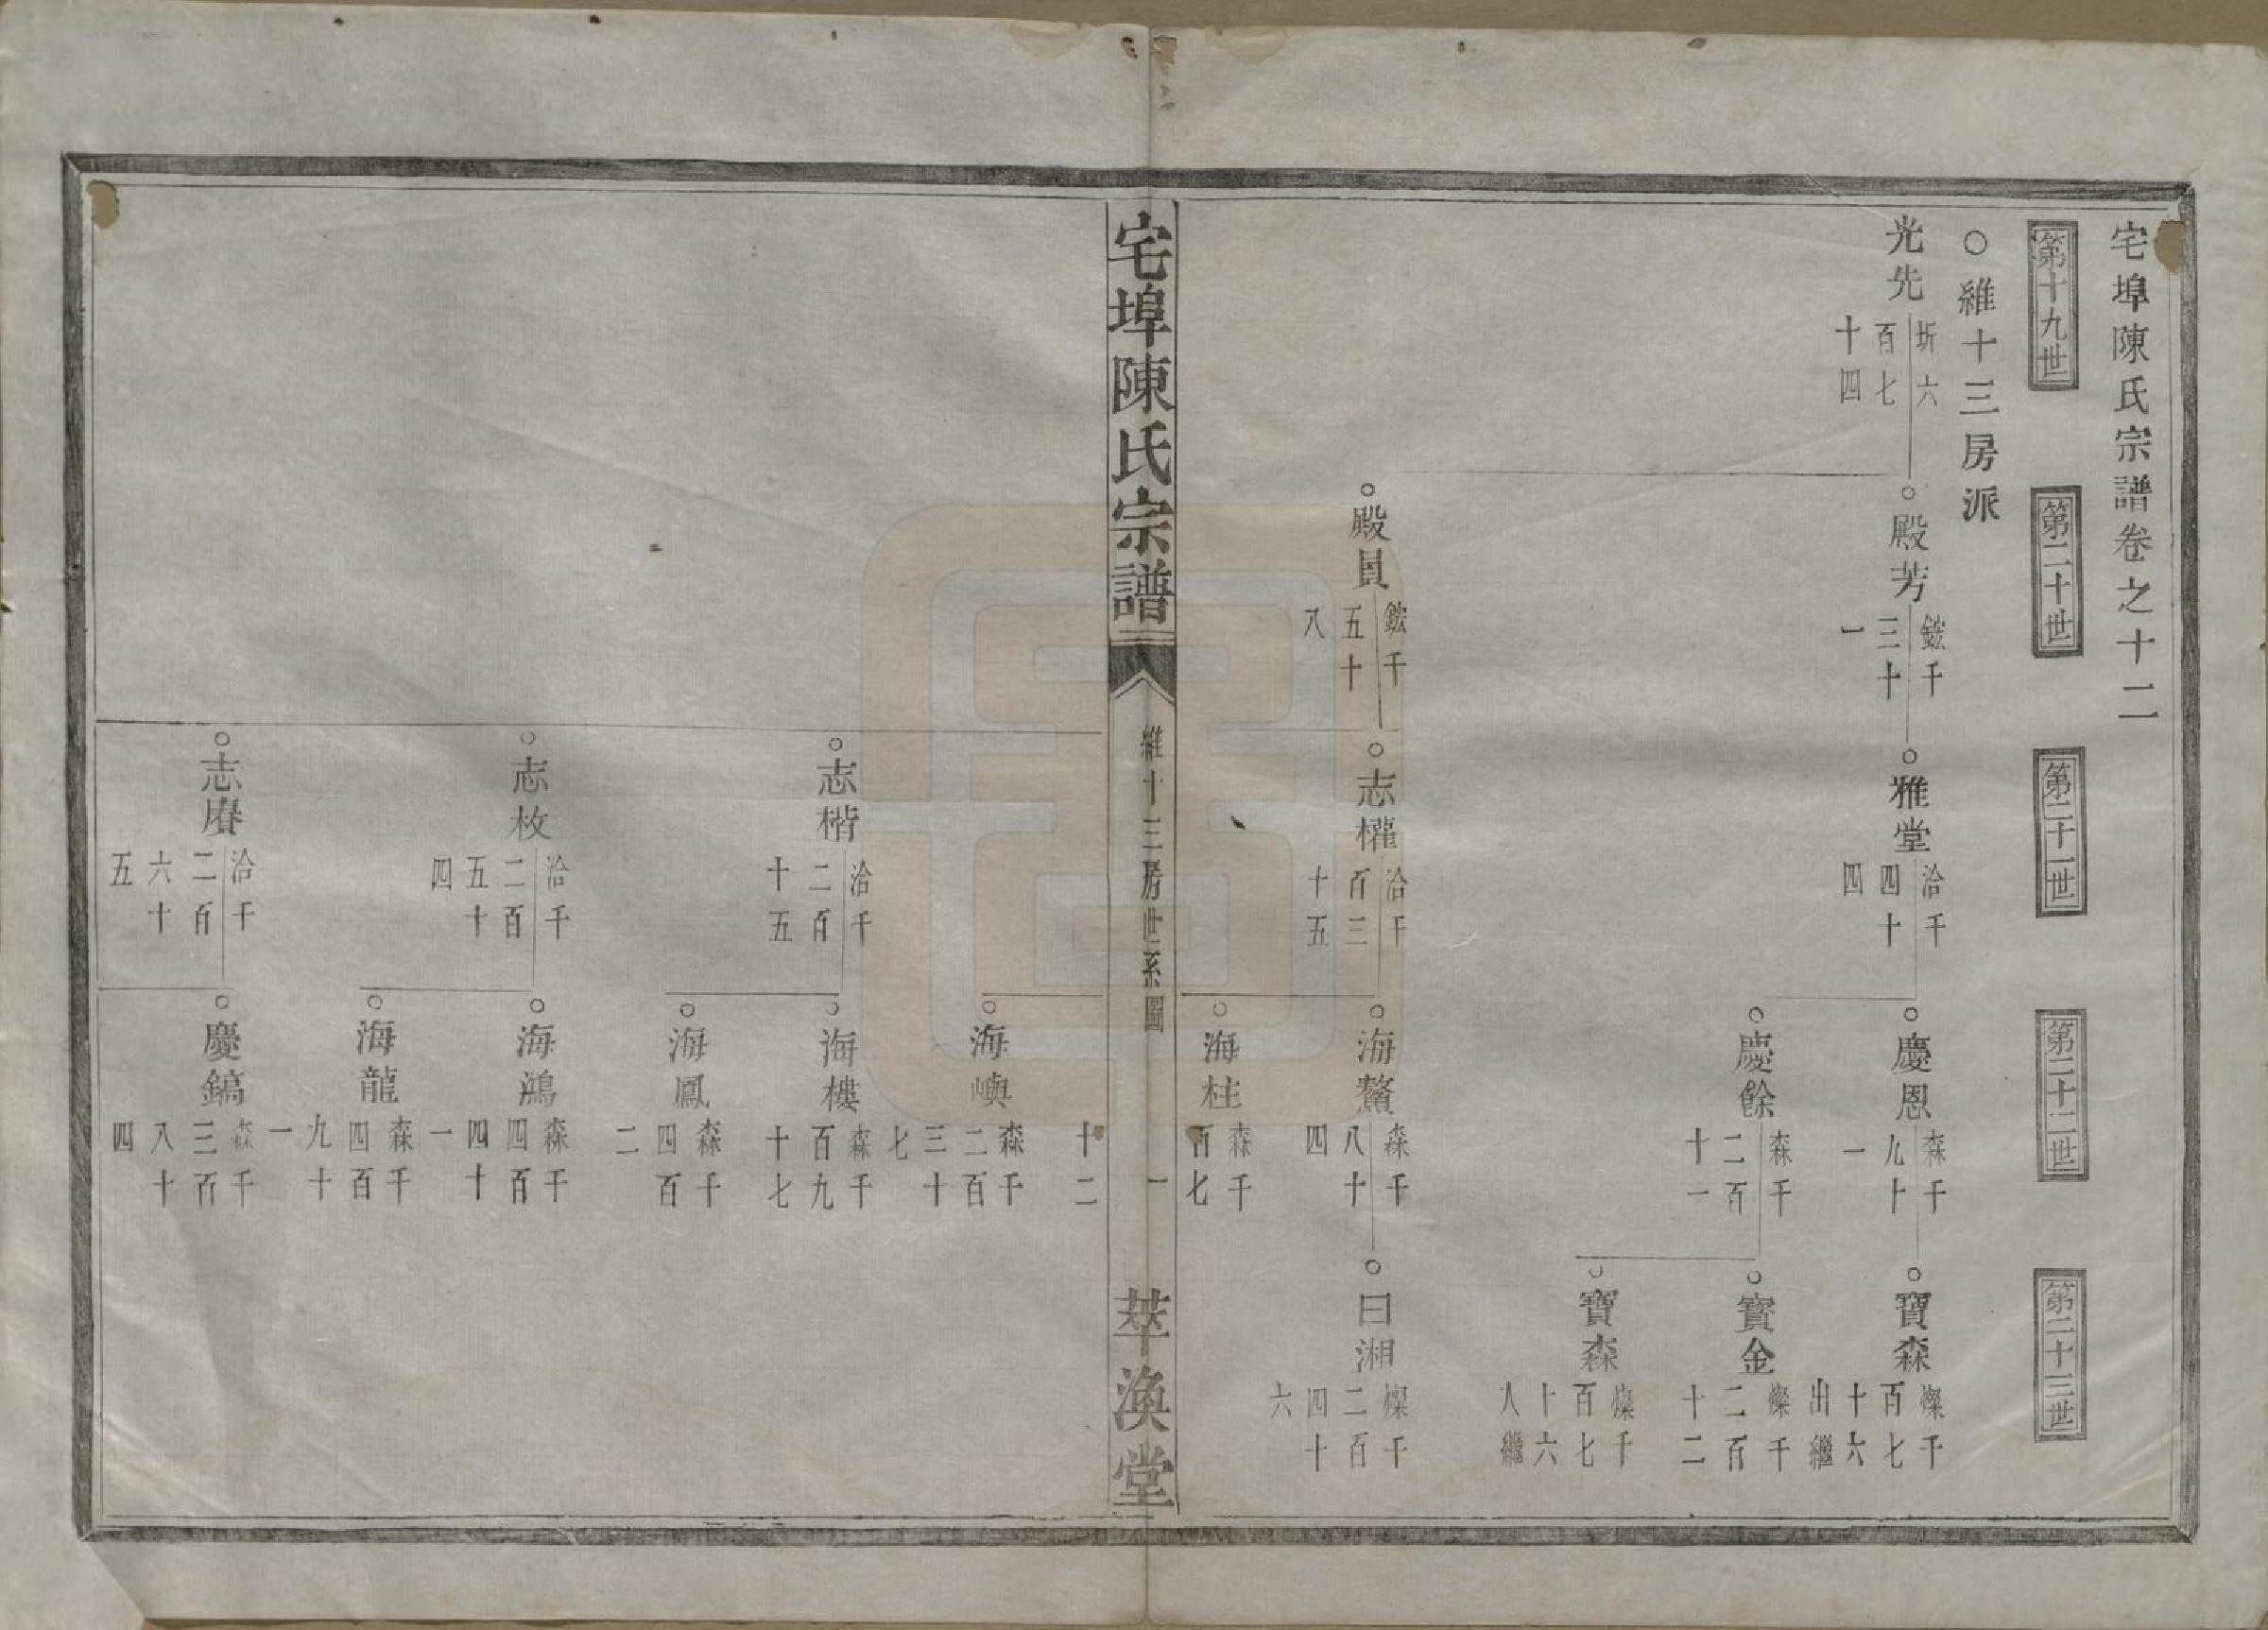 宅埠陳氏宗譜卷之十二
第十九世
第二十世
第二十一世
第二十二世
第二十三世
○維十三房派
光先
圻六
百七
十四
殿芳
鋐千
三十
一
雅堂
洽千
四十
四
慶恩
森千
九十
一
寶森
燦千
百七
十六
出繼
慶餘
森千
二百
十一
寶金
燦千
二百
十二
寶森
燦千
百七
十六
人繼
殿員
鋐千
五十
八
志權
洽千
百三
十五
海鰲
森千
八十
四
曰湘
燦千
二百
四十
六
海柱
森千
百七
十二
宅埠陳氏宗譜
維十三房世系圖
一
萃渙堂
海嶼
森千
二百
三十
七
志楷
洽千
二百
十五
海樓
森千
百九
十七
海鳳
森千
四百
二
志枚
洽千
二百
五十
四
海鴻
森千
四百
四十
一
海龍
森千
四百
九十
一
志
洽千
二百
六十
五
慶鎬
森千
三百
八十
四